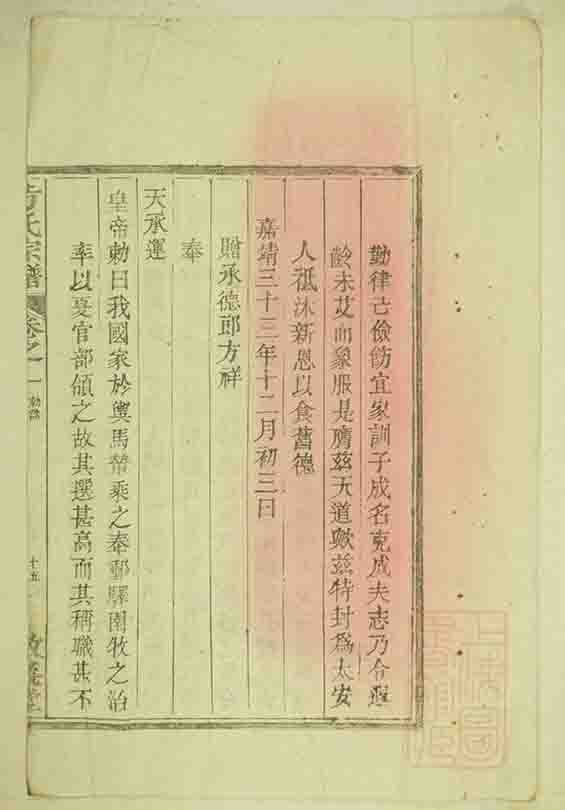 勤律己儉飭宜家訓子成名克成夫志乃今遐
齡未艾而象服是膺茲天道歟茲特封爲太安
人祗沐新恩以食舊德
嘉靖三十三年十二月初三日
贈承德郎方祥
奉
天承運
皇帝勅曰我國家於輿馬幣乘之奉郵驛圉牧之治
率以夏官部領之故其選甚高而其稱職甚不
方氏宗譜 卷之一 十五